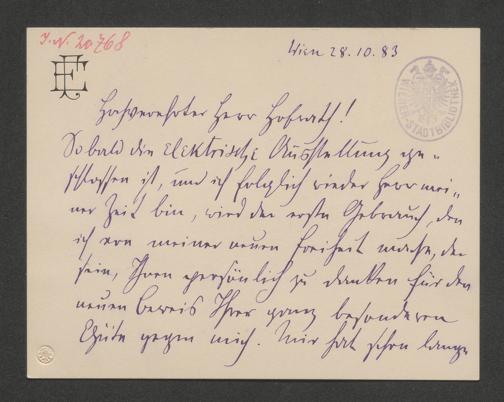 J.N. 20768
Wien 28.10.83
EF
Hochverehrter Herr Hofrath!
Sobald die Elektrische Ausstellung ge-
schlossen ist, und ich folglich wieder Herr mei-
ner Zeit bin, wird der erste Gebrauch, den
ich von meiner neuen Freiheit mache, der
sein, Ihnen persönlich zu danken für den
neuen Beweis Ihrer ganz besonderen
Güte gegen mich. Mir hat schon lange